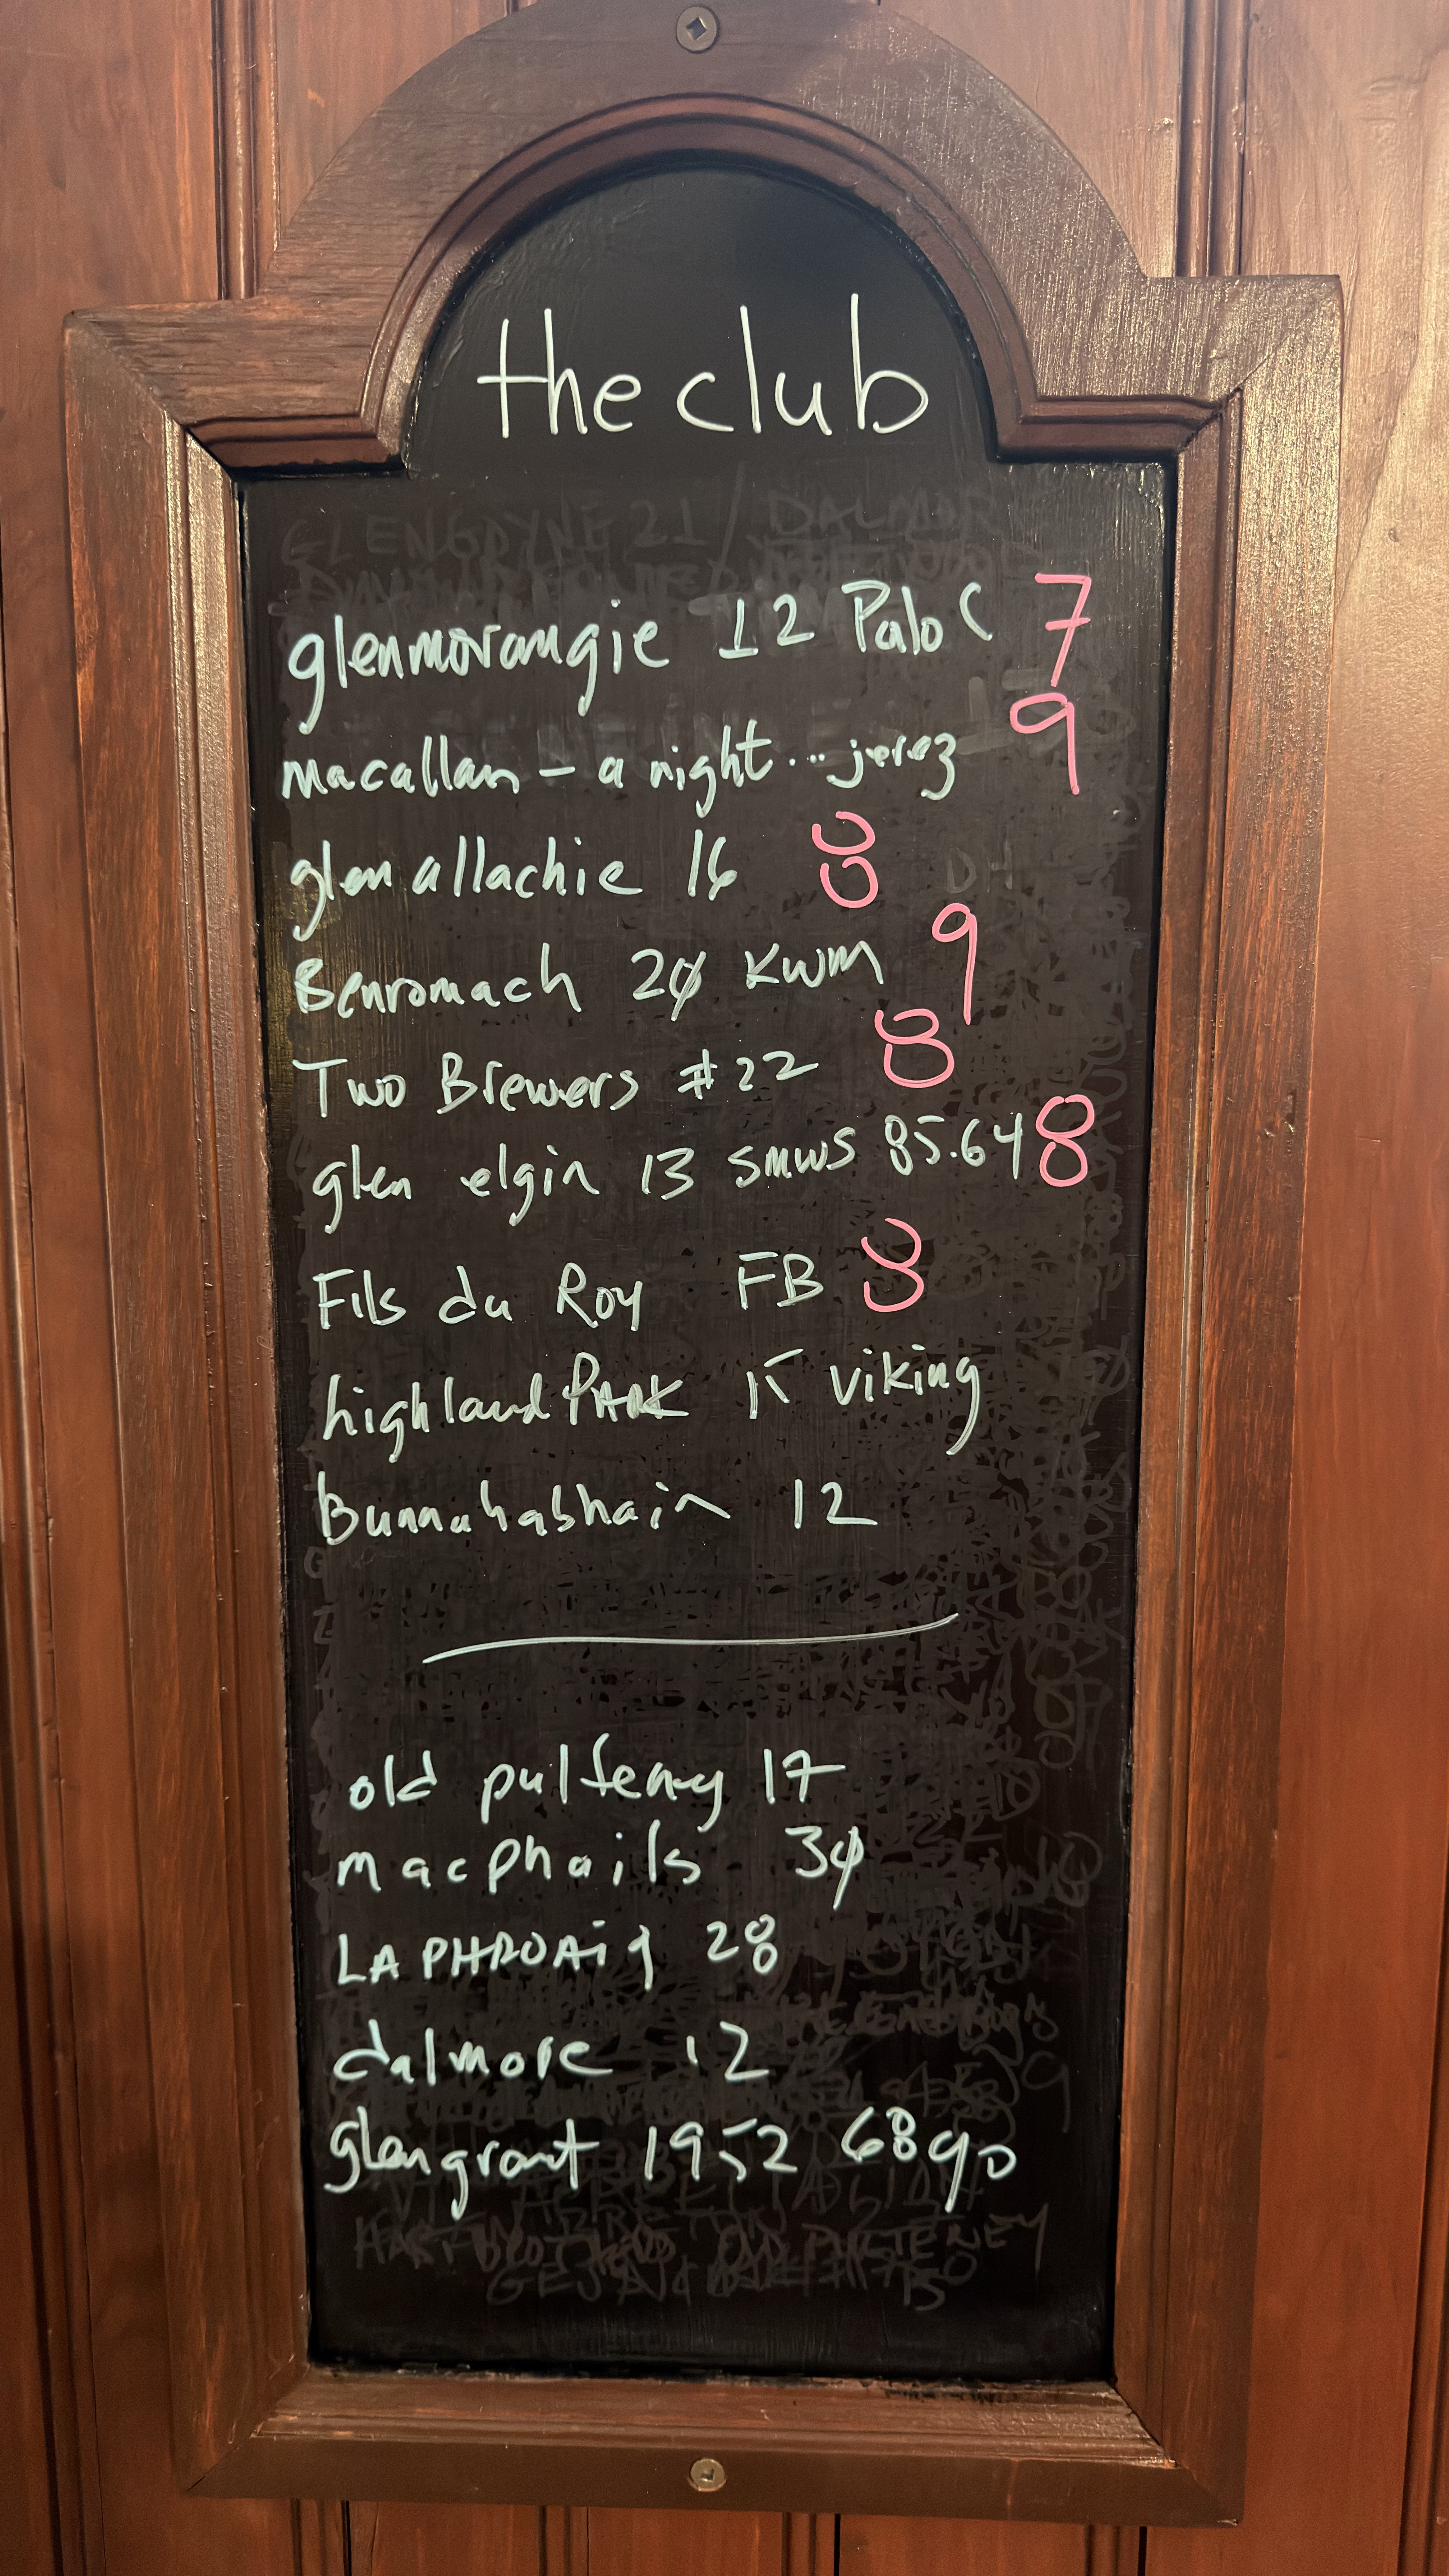 the club
glenmorangie 12 Palo C 7
macallan – a night... jerez 9
glenallachie 16 8
Benromach 20 KWM 9
Two Brewers #22 8
glen elgin 13 smws 85.64 8
Fils du Roy FB 8
highland PARK 15 viking
Bunnahabhain 12
old pulteney 17
macphails 30
LAPHROAig 28
dalmore 12
glengrant 1952 68yo